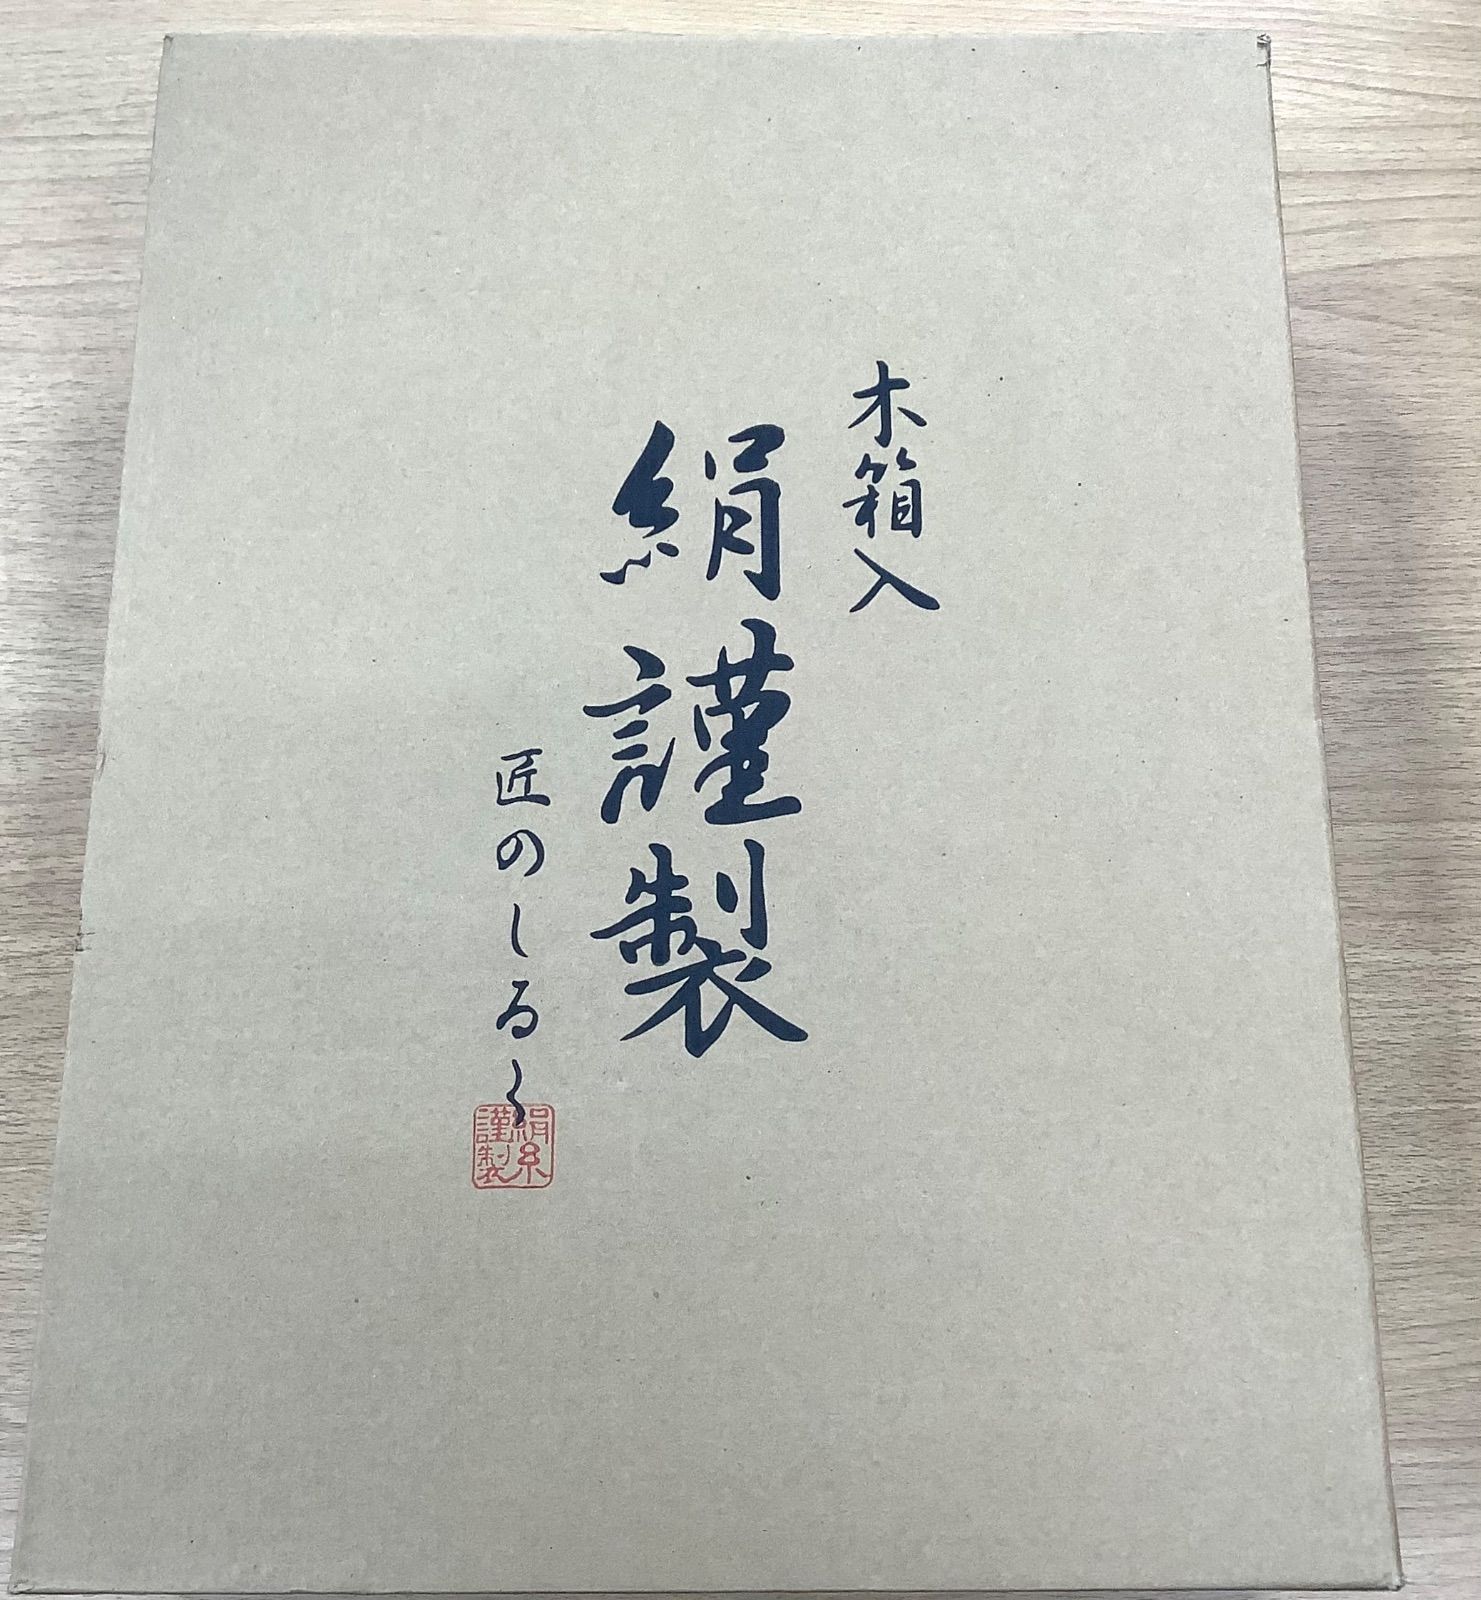 木箱入
絹謹製
匠のしるし
絹糸
謹製